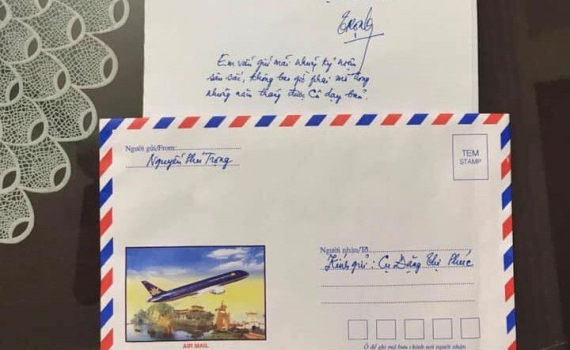 Trọng
Em vẫn giữ mãi những kỷ niệm
sâu sắc, không bao giờ phai mờ trong
những năm tháng được Cô dạy bảo.
Người gửi/From:
Nguyễn Phú Trọng
TEM
STAMP
Người nhận/To
Kính gửi: Cụ Đặng Thị Phúc
AIR MAIL
Ô để ghi mã bưu chính nơi người nhận